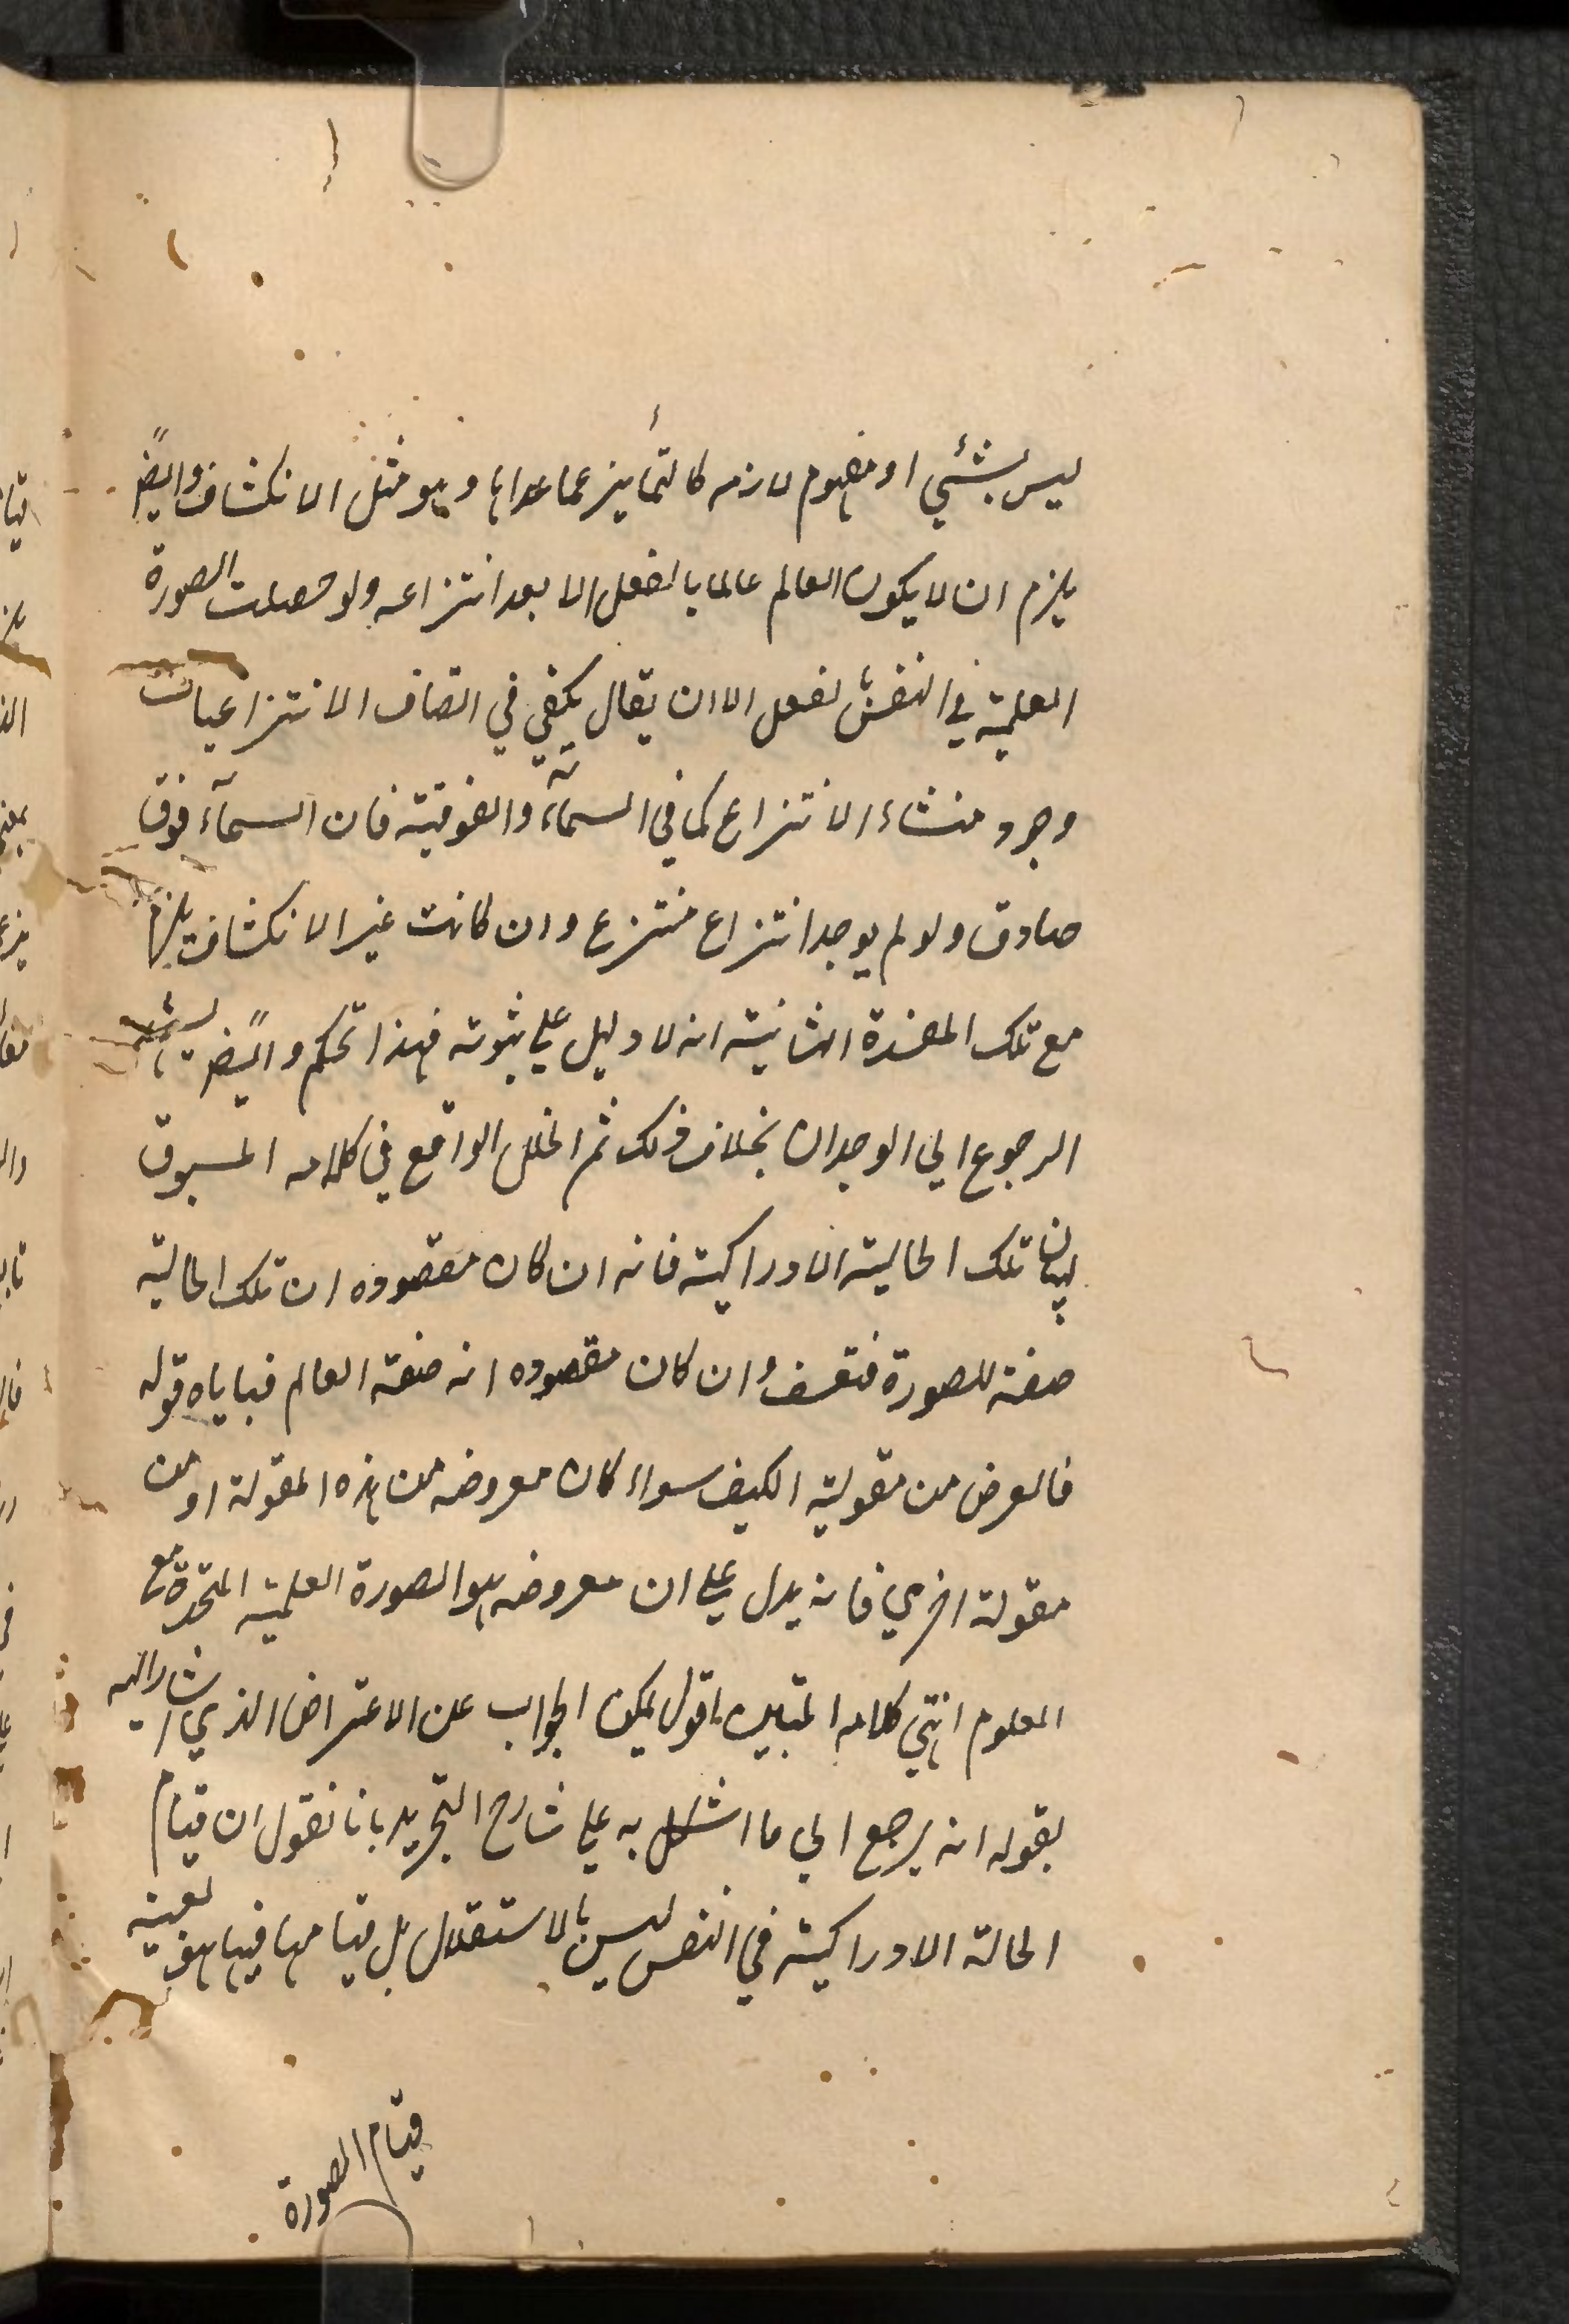 ليس بشئي او مفهوم لازمه كالتمايز عما عداها وهو مثل الانكشاف وايضً
يلزم ان لا يكون العالم عالما بالفعل الا بعد انتزاعه ولو حصلت الصورة
العلمية في النفس لفعل الا ان يقال يكفي في اتصاف الانتزاعيات
وجود منشاء الانتزاع كما في السمآء والفوقية فان السمآء فوق
صادق ولو لم يوجد انتزاع منتزع وان كانت غير الانكشاف يلزم
مع تلك المفسدة الثانية انه لا دليل علي ثبوته فهذا تحكم وايضً
الرجوع الي الوجدان بخلاف ذلك ثم الخلل الواقع في كلامه المسبوق
لبيان تلك الحالية الادراكية فانه ان كان مقصوده ان تلك الحالية
صفة للصورة فتعسف وان كان مقصوده انه صفة العالم فياباه قوله
فالعرض من مقولية الكيف سواء كان معروضه من هذه المقولة او من
مقولة اخري فانه يدل علي ان معروضه هو الصورة العلمية المتحدة مع
المعلوم انتهي كلامه المتين اقول يمكن الجواب عن الاعتراض الذي اشار اليه
بقوله انه يرجع الي ما اشكل به علي شارح التجريد بانا نقول ان قيام
الحالة الادراكية في النفس ليس بالاستقلال بل قيامها فيها هو بعينه
قيام الصورة